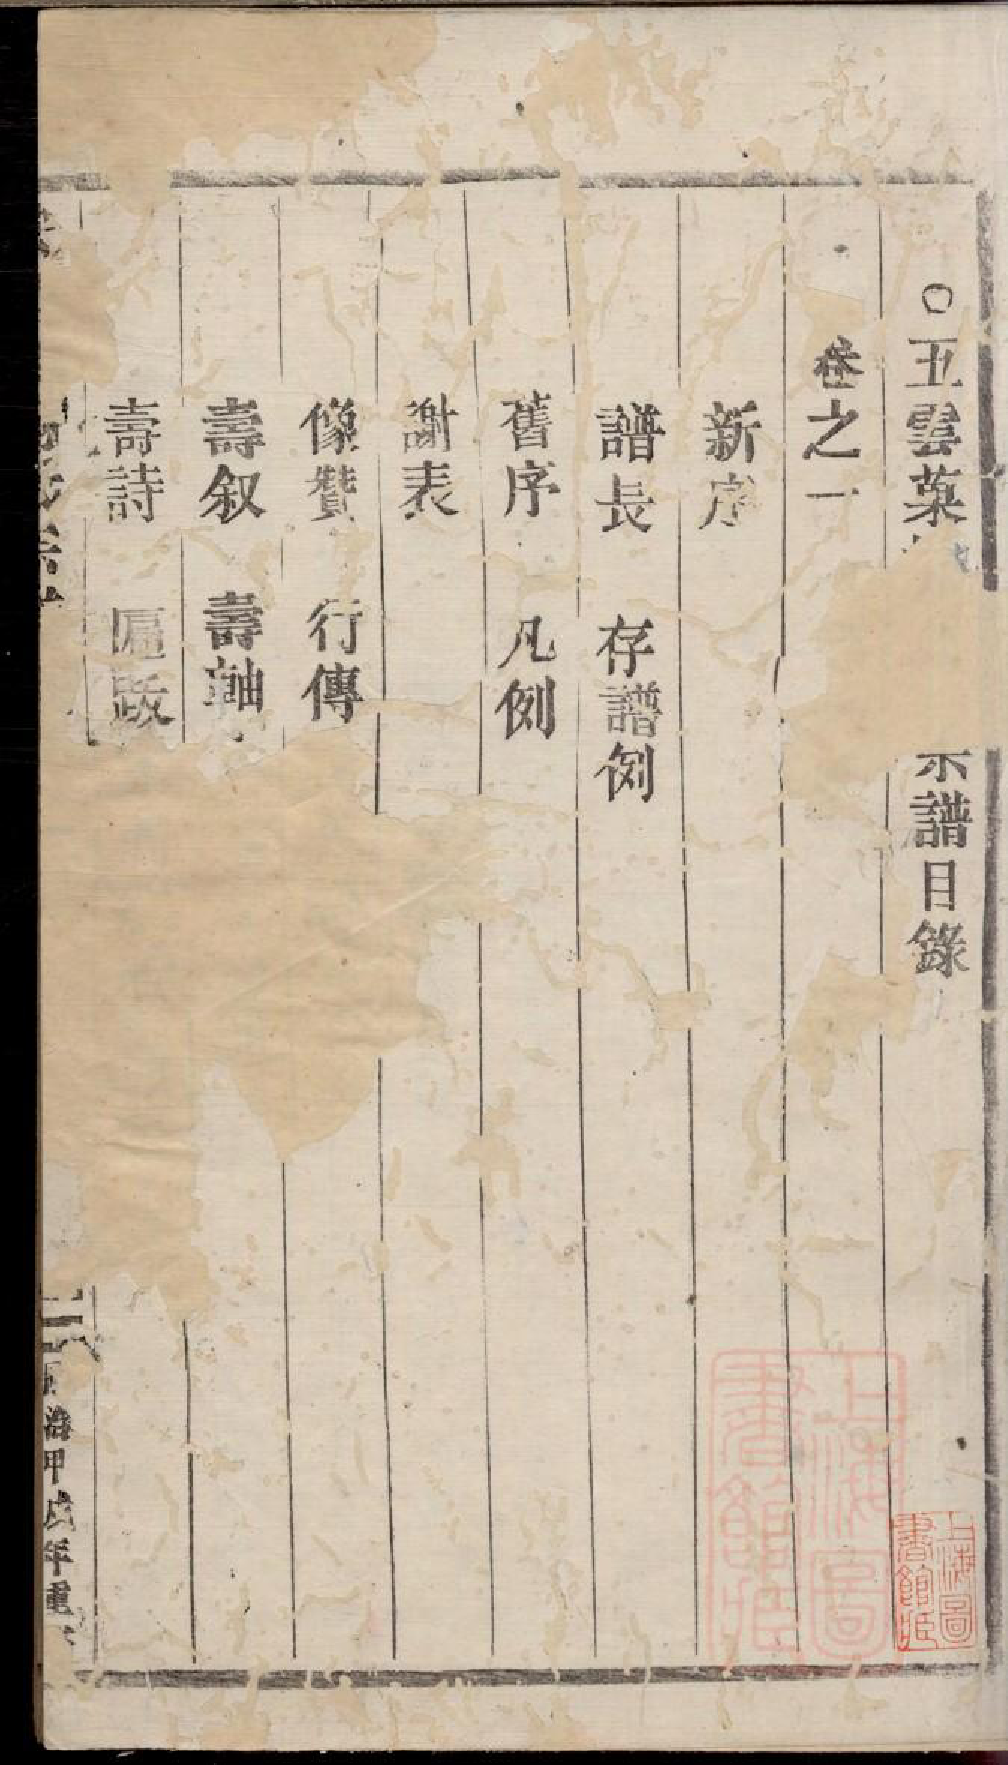 ○五雲葉
宗譜目錄
卷之一
新序
譜長 存譜例
舊序 凡例
謝表
像贊 行傳
壽叙 壽軸
壽詩 匾跋
氏宗
治甲戌年重
上海圖書館藏
上海圖書館藏